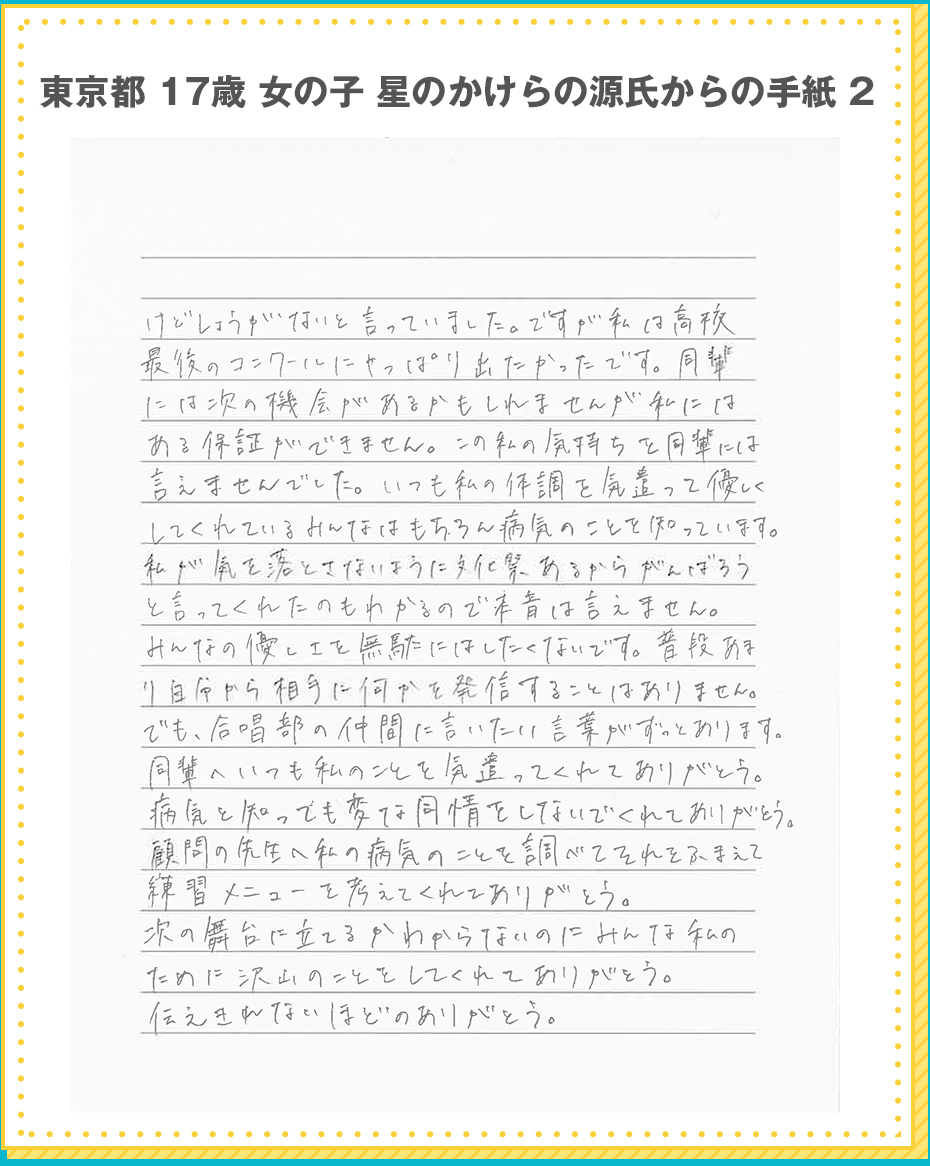 東京都 17歳 女の子 星のかけらの源氏からの手紙 2
けどしょうがないと言っていました。ですが私は高校
最後のコンクールにやっぱり出たかったです。同輩
には次の機会があるかもしれませんが私には
ある保証ができません。この私の気持ちを同輩には
言えませんでした。いつも私の体調を気遣って優しく
してくれているみんなはもちろん病気のことを知っています。
私が気を落とさないように文化祭あるからがんばろう
と言ってくれたのもわかるので本音は言えません。
みんなの優しさを無駄にはしたくないです。普段あま
り自分から相手に何かを発信することはありません。
でも、合唱部の仲間に言いたい言葉がずっとあります。
同輩へいつも私のことを気遣ってくれてありがとう。
病気と知っても変な同情をしないでくれてありがとう。
顧問の先生へ私の病気のことを調べてそれをふまえて
練習メニューを考えてくれてありがとう。
次の舞台に立てるかわからないのにみんな私の
ために沢山のことをしてくれてありがとう。
伝えきれないほどのありがとう。